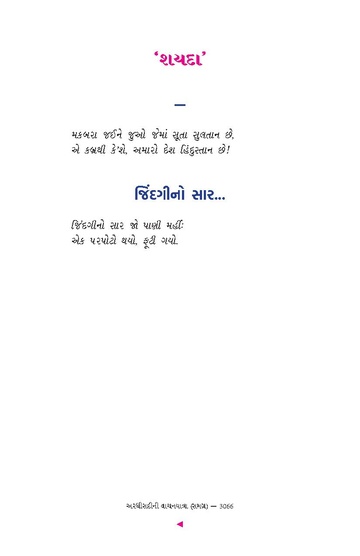 ‘શયદા’
—
મકબરા જઈને જુઓ જેમાં સૂતા સુલતાન છે,
એ કબ્રથી કે'શે, અમારો દેશ હિંદુસ્તાન છે!
જિંદગીનો સાર...
જિંદગીનો સાર જો પાણી મહીંઃ
એક પરપોટો થયો, ફૂટી ગયો.
અરધીસદીની વાચનયાત્રા (સમગ્ર) — 3066